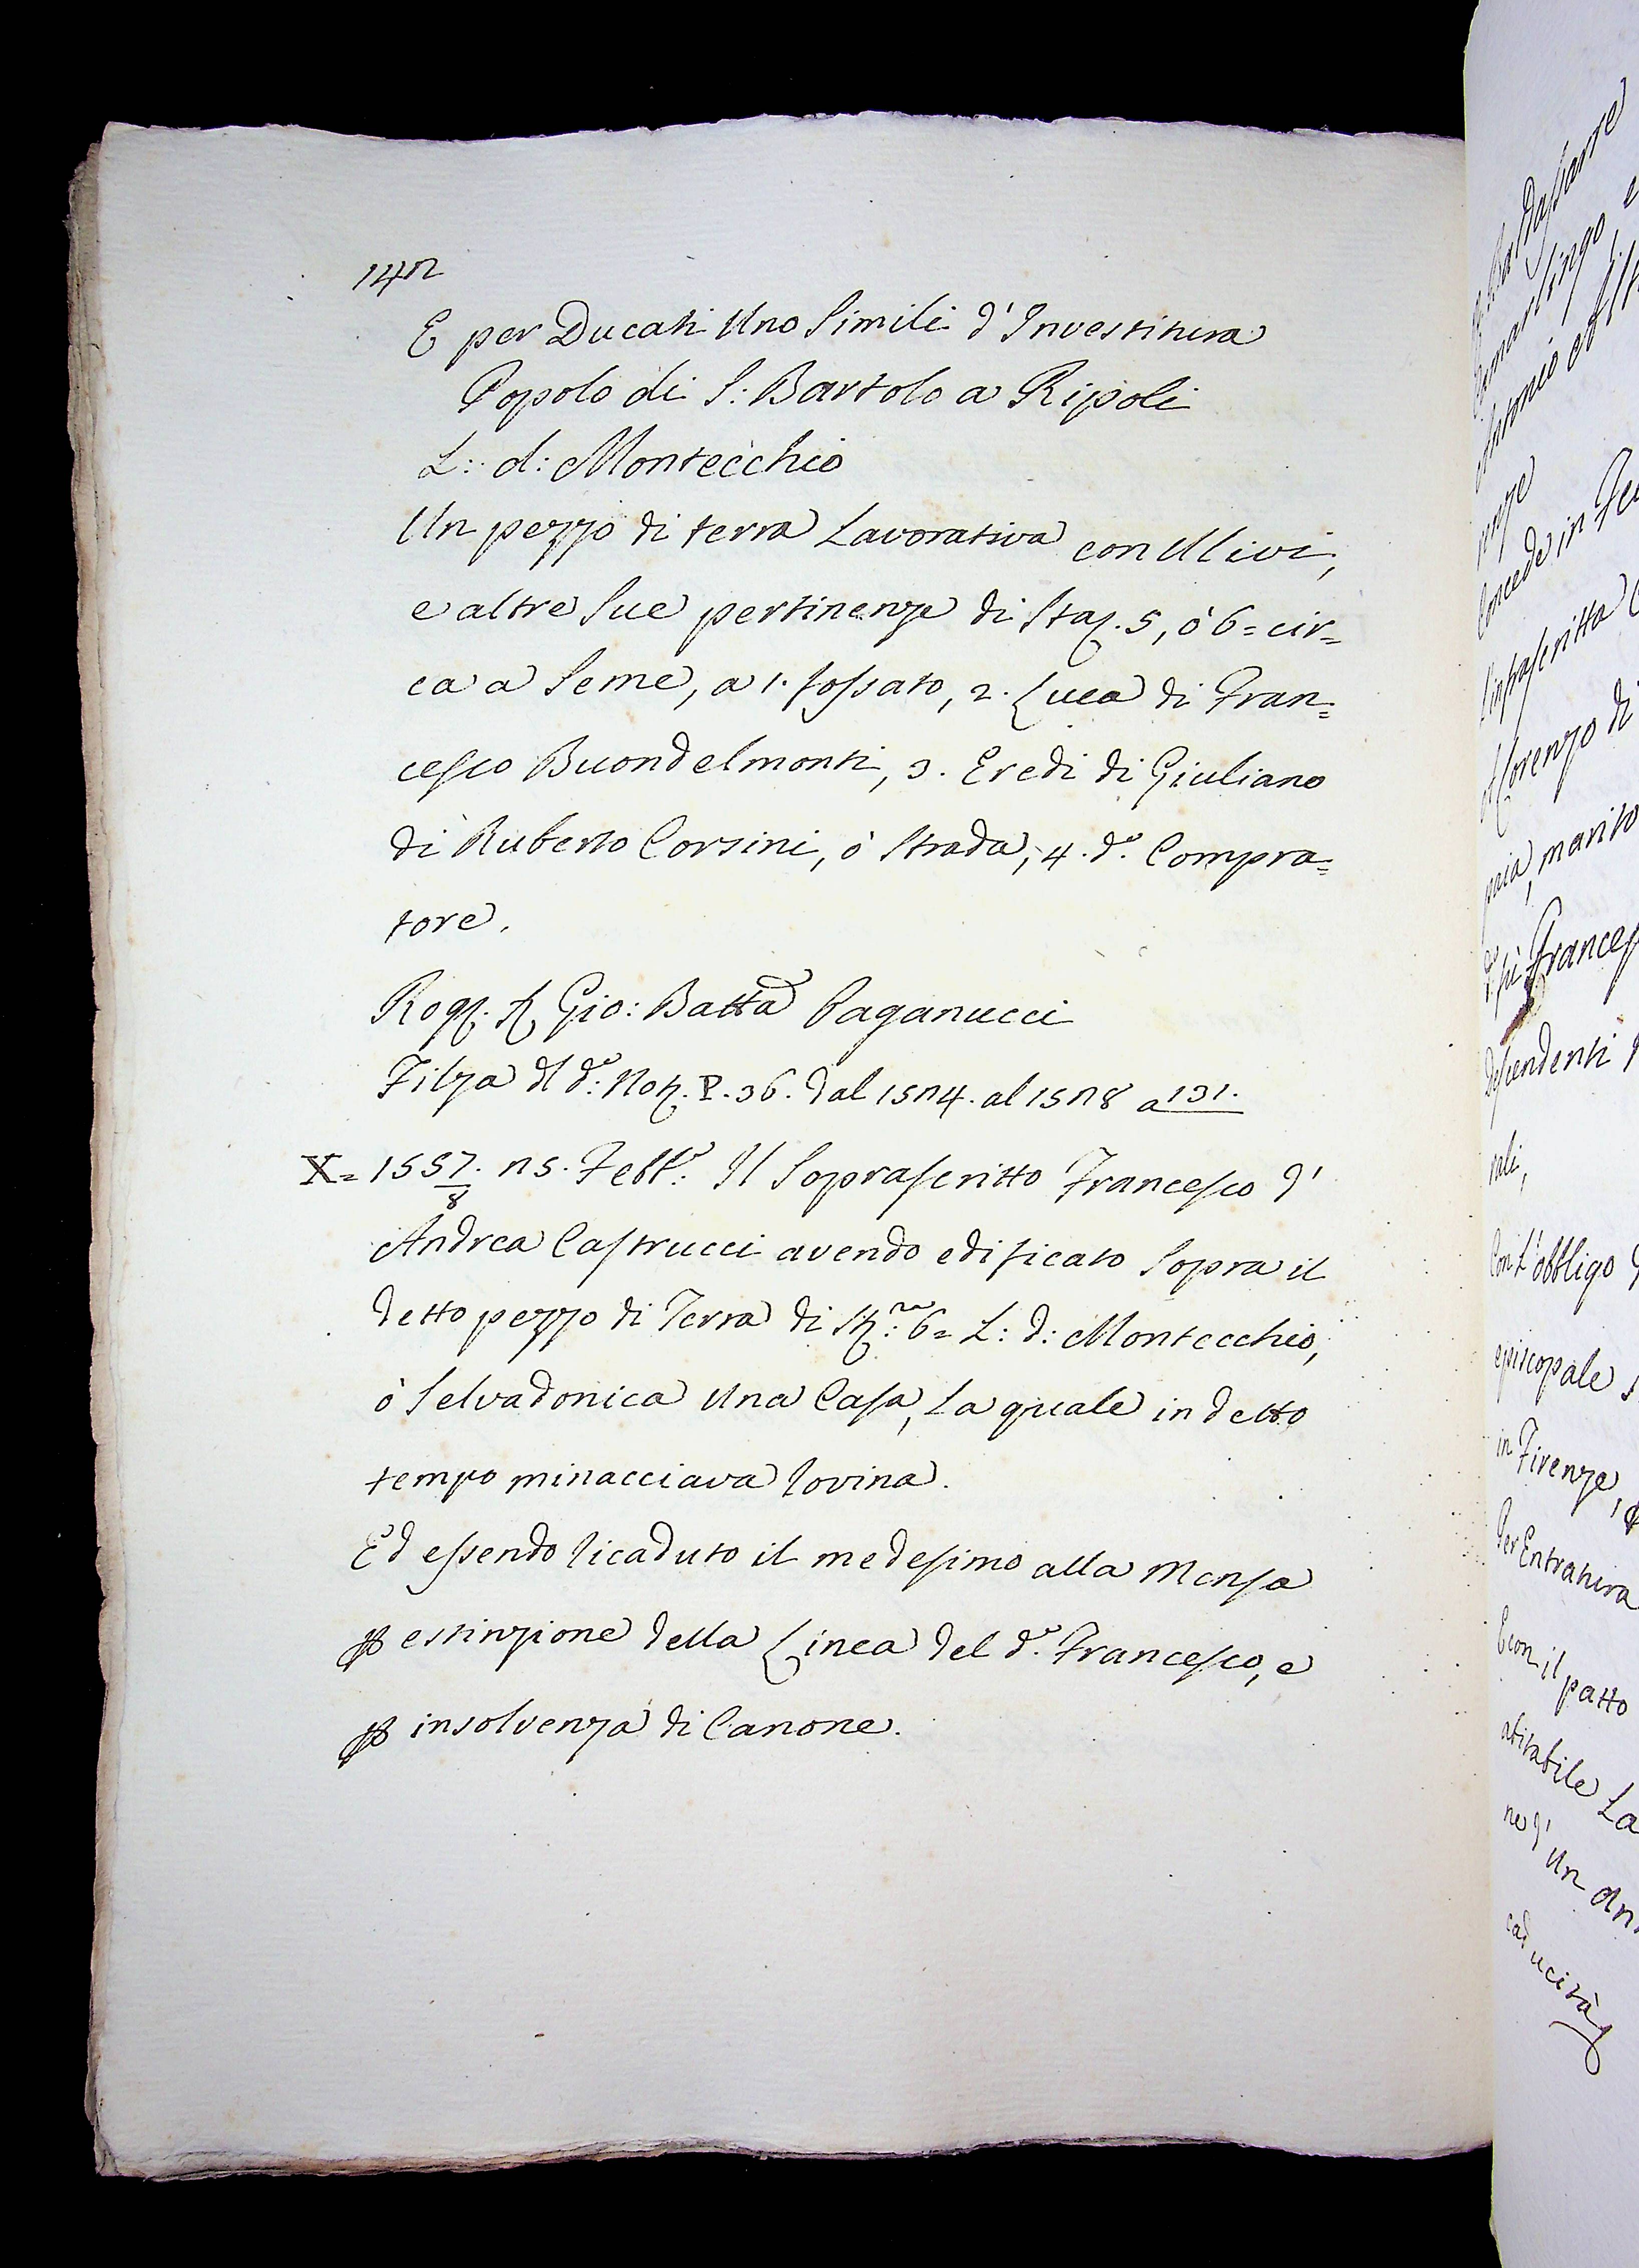 142
E per Ducati Uno Simili d'Investitura
Popolo di S: Bartolo a Ripoli
L: d: Montecchio
Un pezzo di terra Lavorativa con Ulivi,
e altre Sue pertinenze di Staj. 5, ò 6= cir=
ca a Seme, a 1. fossato, 2. Luca di Fran=
cesco Buondelmonti, 3. Eredi di Giuliano
di Ruberto Corsini, ò Strada, 4. d.º Compra=
tore.
Gio: Batta Paganucci
Filza d.º: Not. P. 36. dal 1524. al 1528 a 131.
X= 1557/8. 25. Febb.º: Il Soprascritto Francesco d'
Andrea Castrucci avendo edificato Sopra il
detto pezzo di Terra di St.ra: 6= L: d: Montecchio,
ò Selvadonica Una Casa, La quale in detto
tempo minacciava rovina.
Ed essendo ricaduto il medesimo alla Mensa
p estinzione della Linea del d.º Francesco, e
p insolvenza di Canone.
Concede in
Lorenzo di
marito
l'obbligo
episcopale
in Firenze,
Per Entratura
E con il patto
abitabile La
caducità